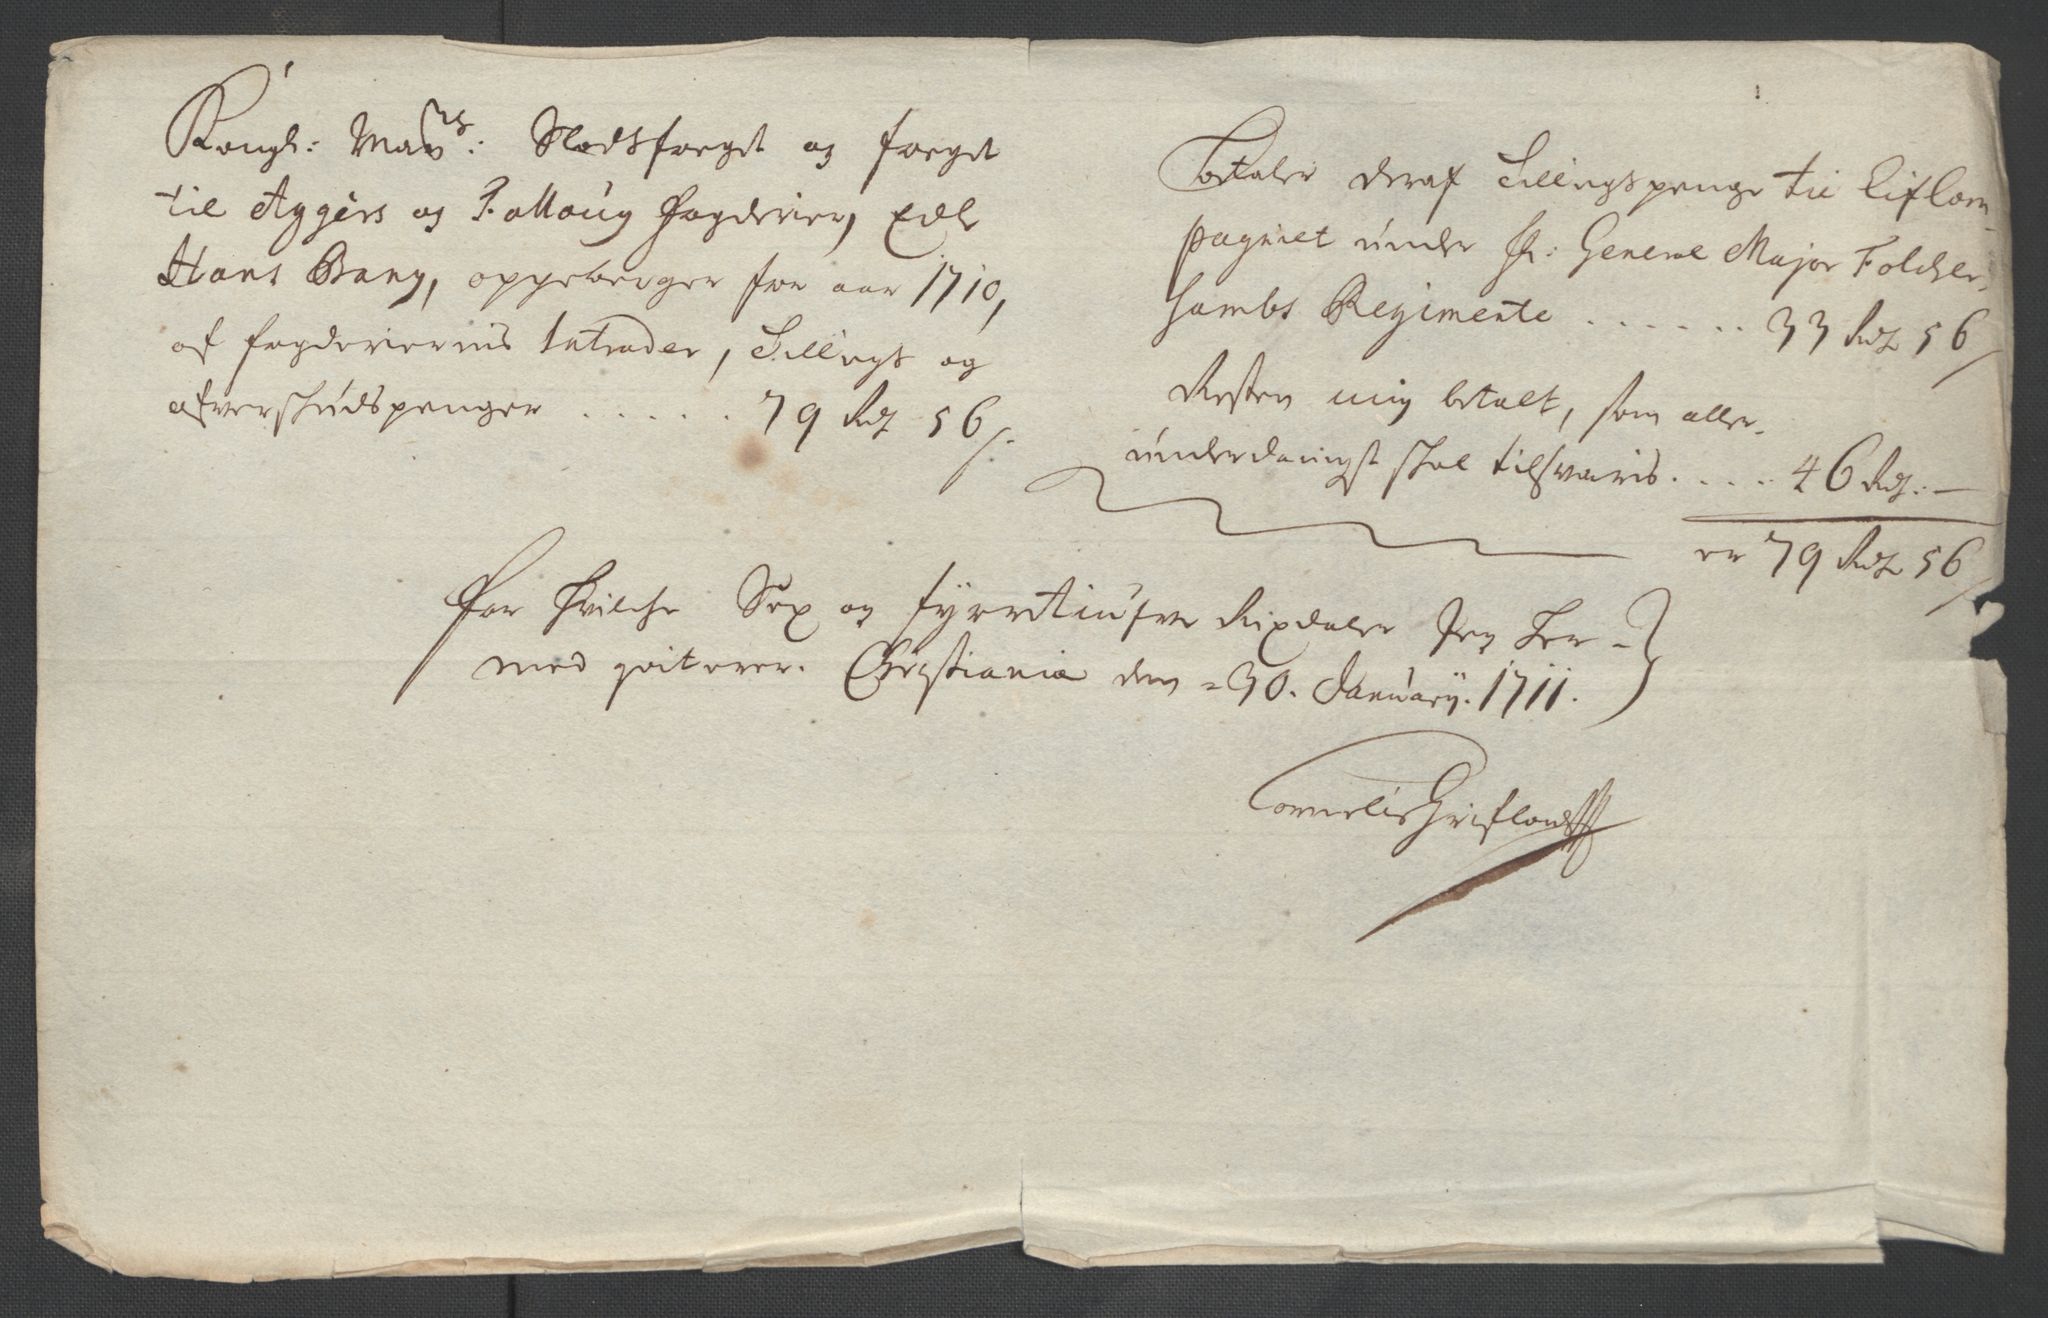 Kongl: Maÿts: Slodsfoget og foeget
til Aggers og Follougs fogderier, Edle
Hans Bang, oppeberger for aar 1710,
af fogderiernis Intrader, Sillings og
afverskudspenger . . . . . . 79 Rdr 56 s.
Betaler deraf Sillingspenge til Lif Com-
pagniet under Hr: General Major Tolder
hambs Regimente . . . . . . 33 Rdr 56 s
Resten mig betalt, som aller-
underdanigst skal tilsvaris . . . . . 46 Rdr: —
er 79 Rdr 56 s
For hvilche Sex og fyrretiufve Rixdaler Jeg her-
med qviterer. Christiania den 30. January. 1711.
Cornelis Grifland